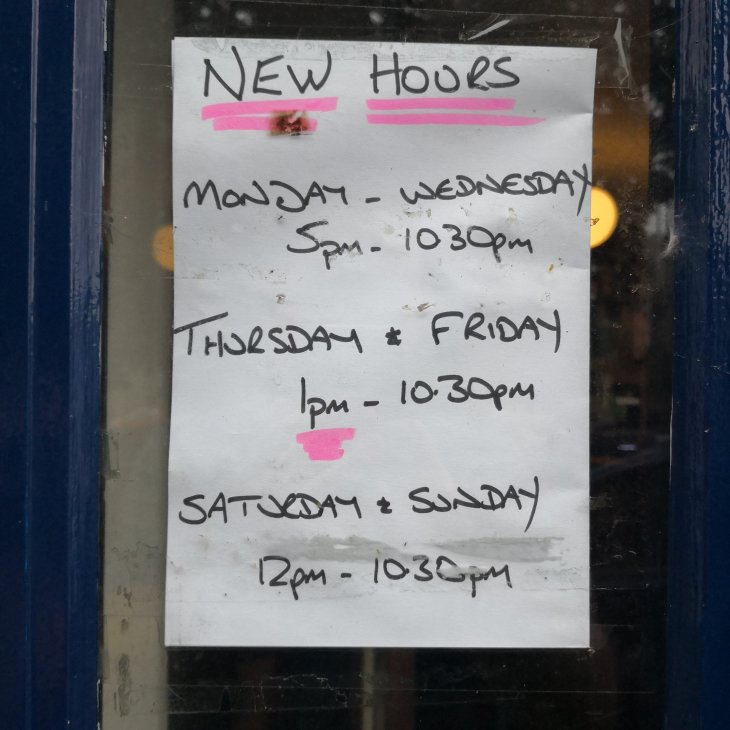 NEW HOURS
MONDAY - WEDNESDAY
5pm - 1030pm
THURSDAY & FRIDAY
1pm - 10.30pm
SATURDAY & SUNDAY
12pm - 10.30pm